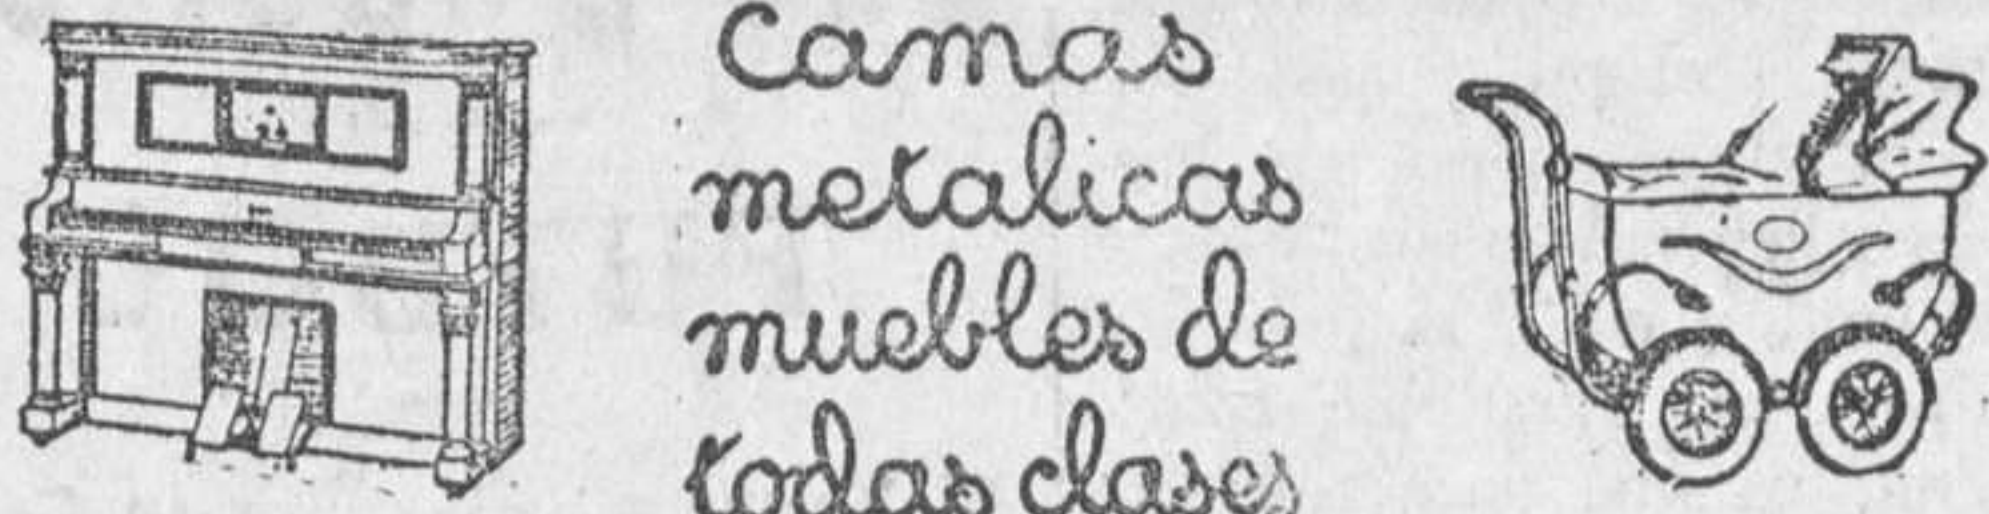 Camas
metalicas
muebles de
todas clases